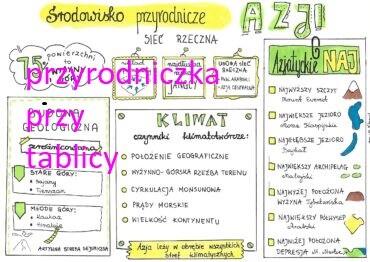 Środowisko przyrodnicze AZJI
SIEĆ RZECZNA
75%
powierzchni
to
przyrodniczka
przy
tablicy
UBOGA SIEĆ
RZECZNA
GEOLOGICZNA
zróżnicowana
STARE GÓRY:
MŁODE GÓRY:
Himalaje
AKTYWNA STREFA SEJSMICZNA
KLIMAT
czynniki klimatotwórcze:
POŁOŻENIE GEOGRAFICZNE
WYŻYNNO-GÓRSKA RZEŹBA TERENU
CYRKULACJA MONSUNOWA
PRĄDY MORSKIE
WIELKOŚĆ KONTYNENTU
Azja leży w obrębie wszystkich
stref klimatycznych
Azjatyckie NAJ
NAJWYŻSZY SZCZYT
Mount Everest
NAJWIĘKSZE JEZIORO
Morze Kaspijskie
NAJGŁĘBSZE JEZIORO
Bajkał
NAJWIĘKSZY ARCHIPELAG
Malajski
NAJWYŻEJ POŁOŻONA
WYŻYNA Tybetańska
NAJWIĘKSZY PÓŁWYSEP
Arabski
NAJNIŻEJ POŁOŻONA
DEPRESJA M. Martwe